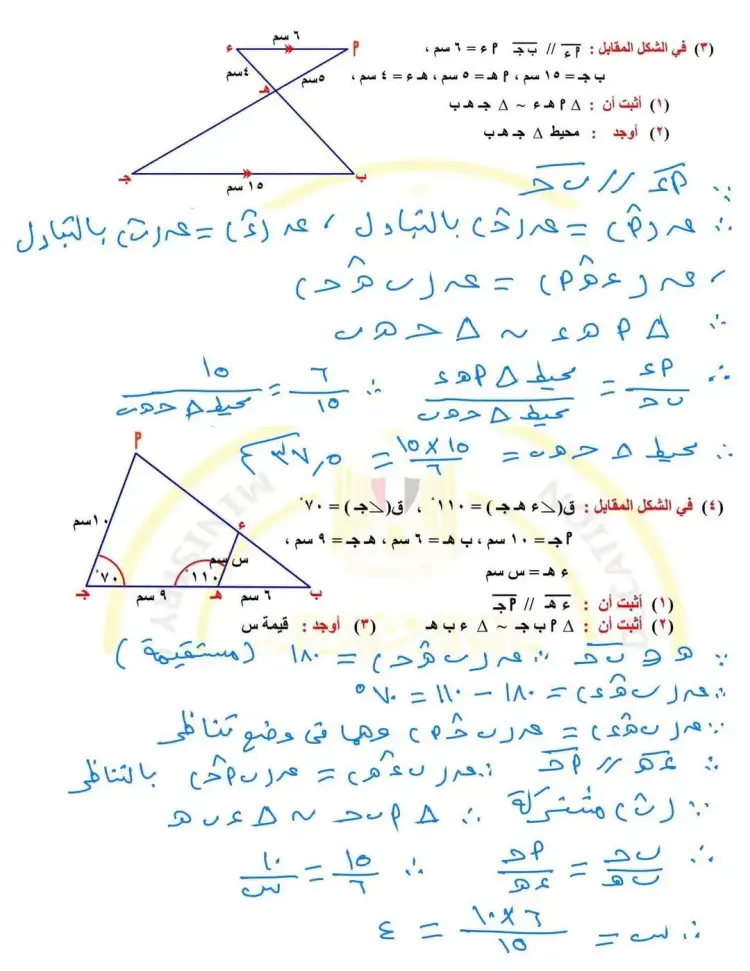 (٣) في الشكل المقابل : أء // ب جـ أ ء = ٦ سم ،
ب جـ = ١٥ سم ، أ هـ = ٥ سم ، هـ ء = ٤ سم ،
(١) أثبت أن : Δ أ هـ ء ~ Δ جـ هـ ب
(٢) أوجد : محيط Δ جـ هـ ب
٦ سم
أ
ء
٤سم
٥سم
هـ
جـ
ب
١٥ سم
∵ أء // ب حـ
∴ ق(أ) = ق(حـ) بالتبادل ، ق(ء) = ق(ب) بالتبادل
، ق(ء هـ أ) = ق(ب هـ حـ)
∴ Δ أ هـ ء ~ Δ حـ هـ ب
∴ أء / ب حـ = محيط Δ أ هـ ء / محيط Δ حـ هـ ب ∴ ٦ / ١٥ = ١٥ / محيط Δ حـ هـ ب
∴ محيط Δ حـ هـ ب = ١٥ × ١٥ / ٦ = ٣٧,٥ سم
(٤) في الشكل المقابل : ق(∠ء هـ جـ) = ١١٠° ، ق(∠جـ) = ٧٠°
أ جـ = ١٠ سم ، ب هـ = ٦ سم ، هـ جـ = ٩ سم ،
ء هـ = س سم
(١) أثبت أن : ء هـ // أ جـ
(٢) أثبت أن : Δ أ ب جـ ~ Δ ء ب هـ (٣) أوجد : قيمة س
أ
١٠سم
ء
س سم
٧٠°
١١٠°
جـ
٩ سم
هـ
٦ سم
ب
∵ هـ ∈ ب حـ ∴ ق(ب هـ حـ) = ١٨٠ (مستقيمة)
∴ ق(ب هـ ء) = ١٨٠ – ١١٠ = ٧٠°
∵ ق(ب هـ ء) = ق(ب حـ أ) وهما فى وضع تناظر
∴ ء هـ // أ حـ ∴ ق(ب ء هـ) = ق(ب أ حـ) بالتناظر
∵ (ب) مشتركة ∴ Δ أ ب حـ ~ Δ ء ب هـ
∴ ب حـ / ب هـ = أ حـ / ء هـ ∴ ١٥ / ٦ = ١٠ / س
∴ س = ٦ × ١٠ / ١٥ = ٤